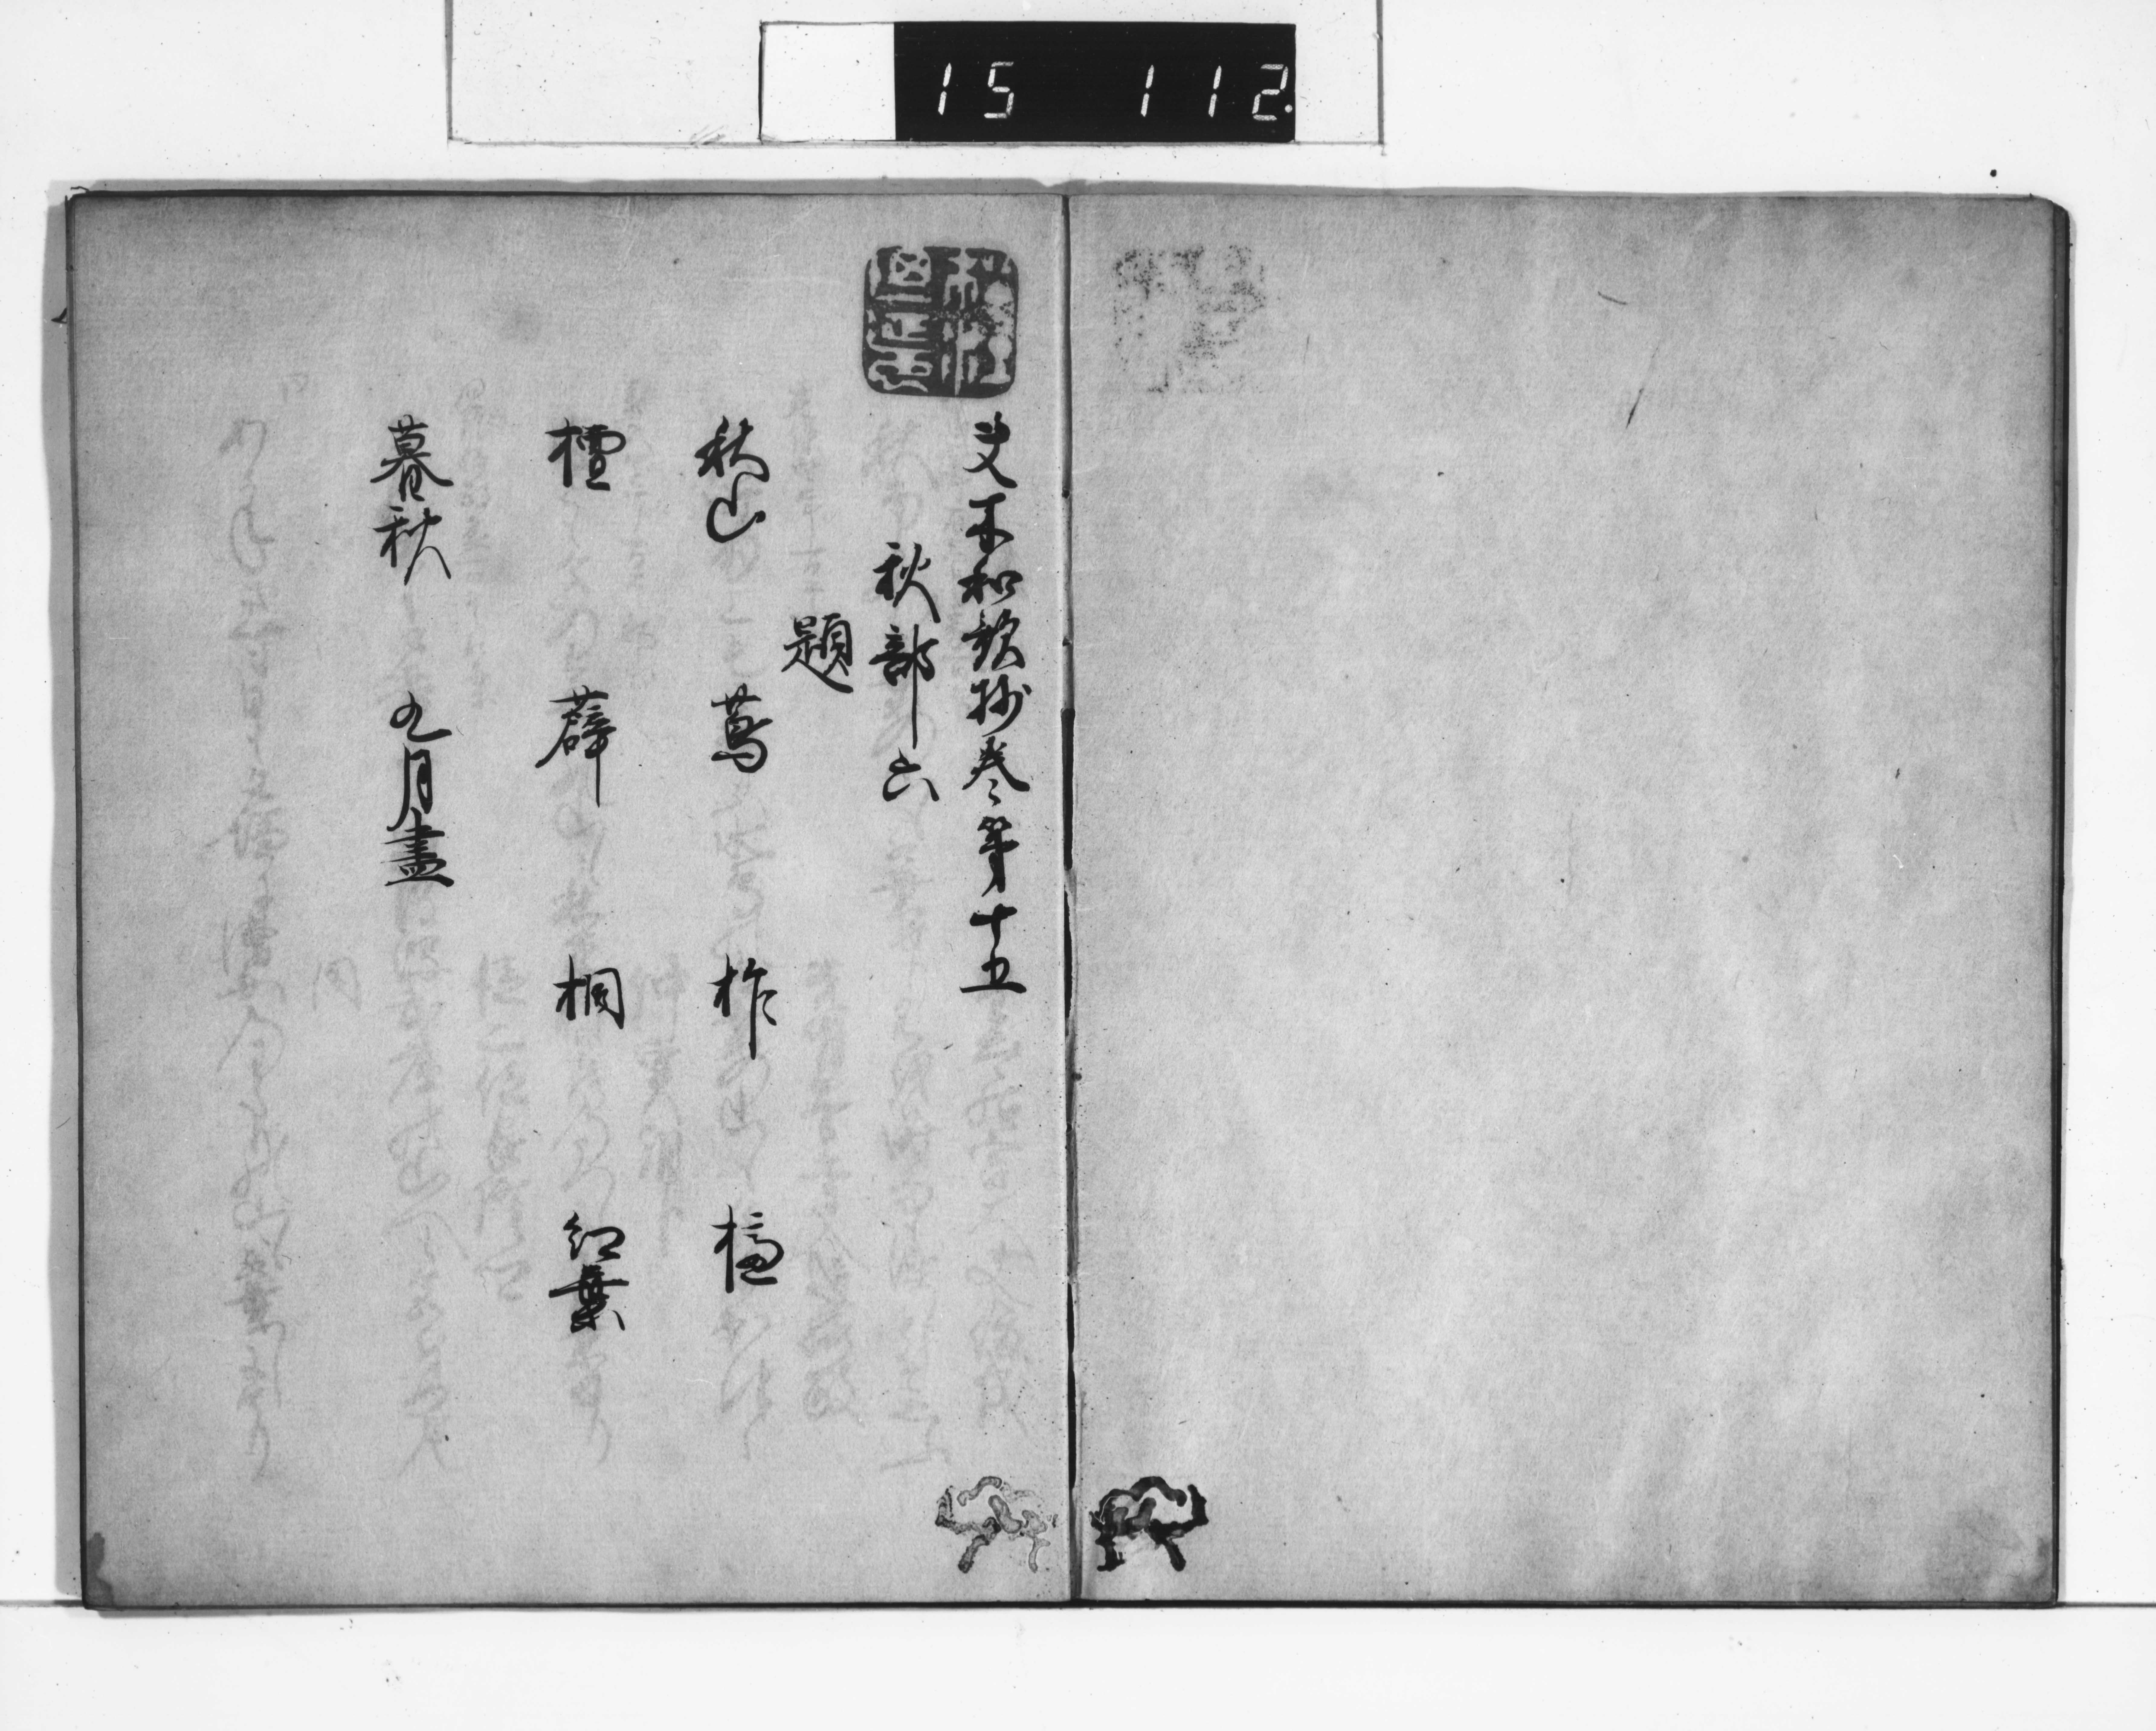 15 112
夫木和歌抄巻第十五
秋部六
題
秋山 蔦 柞 櫨
檀 薜 桐 紅葉
暮秋 九月盡